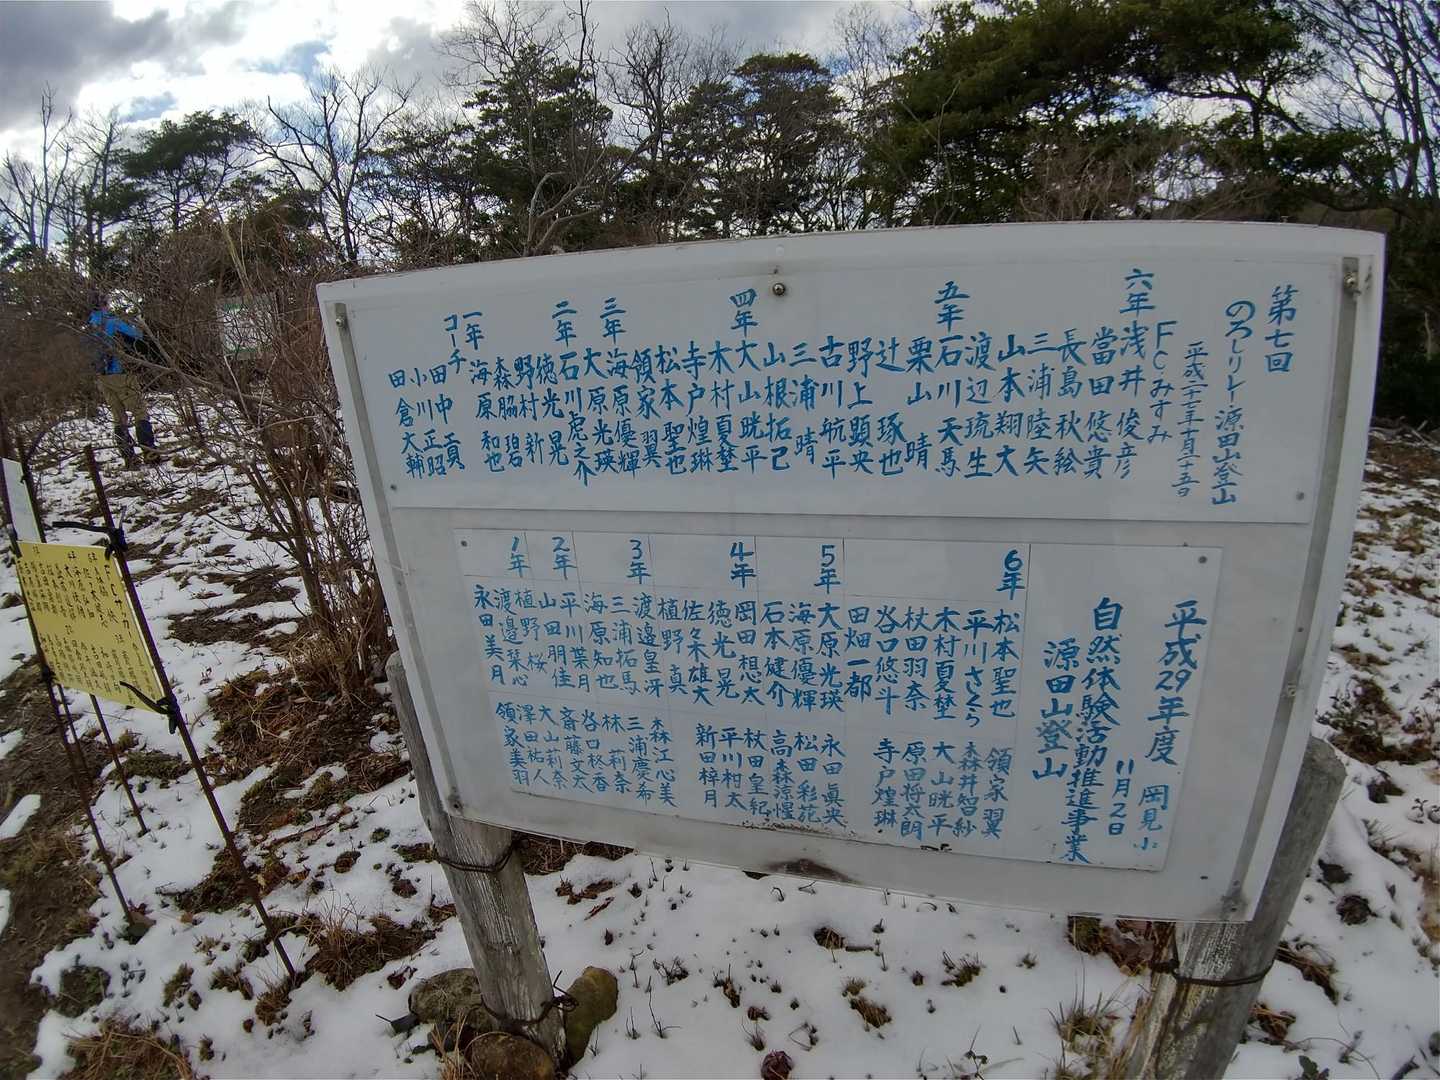 第七回
のろしリレー 源田山登山
平成二十三年十月二十五日
FCみすみ
六年
浅井 俊彦
當田 悠貴
長島 秋絵
三浦 陸矢
山本 翔大
渡辺 琉生
五年
石川 天馬
栗山 晴
辻 琢也
野上 顕央
古川 航平
三浦 晴
山根 拓己
四年
大山 晄平
木村 夏埜
寺戸 煌琳
松本 聖也
領家 翼
三年
海原 優輝
大原 光瑛
二年
石川 虎之介
徳光 晃
野村 新
森脇 碧石
一年
海原 和也
コーチ
田中 正昭
小川
田倉 大幹
平成29年度 岡見小
11月2日
自然体験活動推進事業
源田山登山
6年
松本聖也
平川さくら
木村夏埜
杖田羽奈
谷口悠斗
田畑一都
領家翼
森井智紗
大山晄平
原田将太朗
寺戸煌琳
5年
大原光瑛
海原優輝
石本健介
永田眞央
松田彩花
高森涼惺
4年
岡田想太
徳光晃
佐々木雄大
植野真
杖田皇紀
平川村太
新田梓月
3年
渡邉皇冴
三浦拓馬
海原知也
森江心美
三浦慶希
林莉奈
谷口柊香
2年
平川葉月
山田朋佳
斎藤文太
大山莉奈
1年
植野桜
渡邉琴心
永田美月
澤田祐人
領家美羽